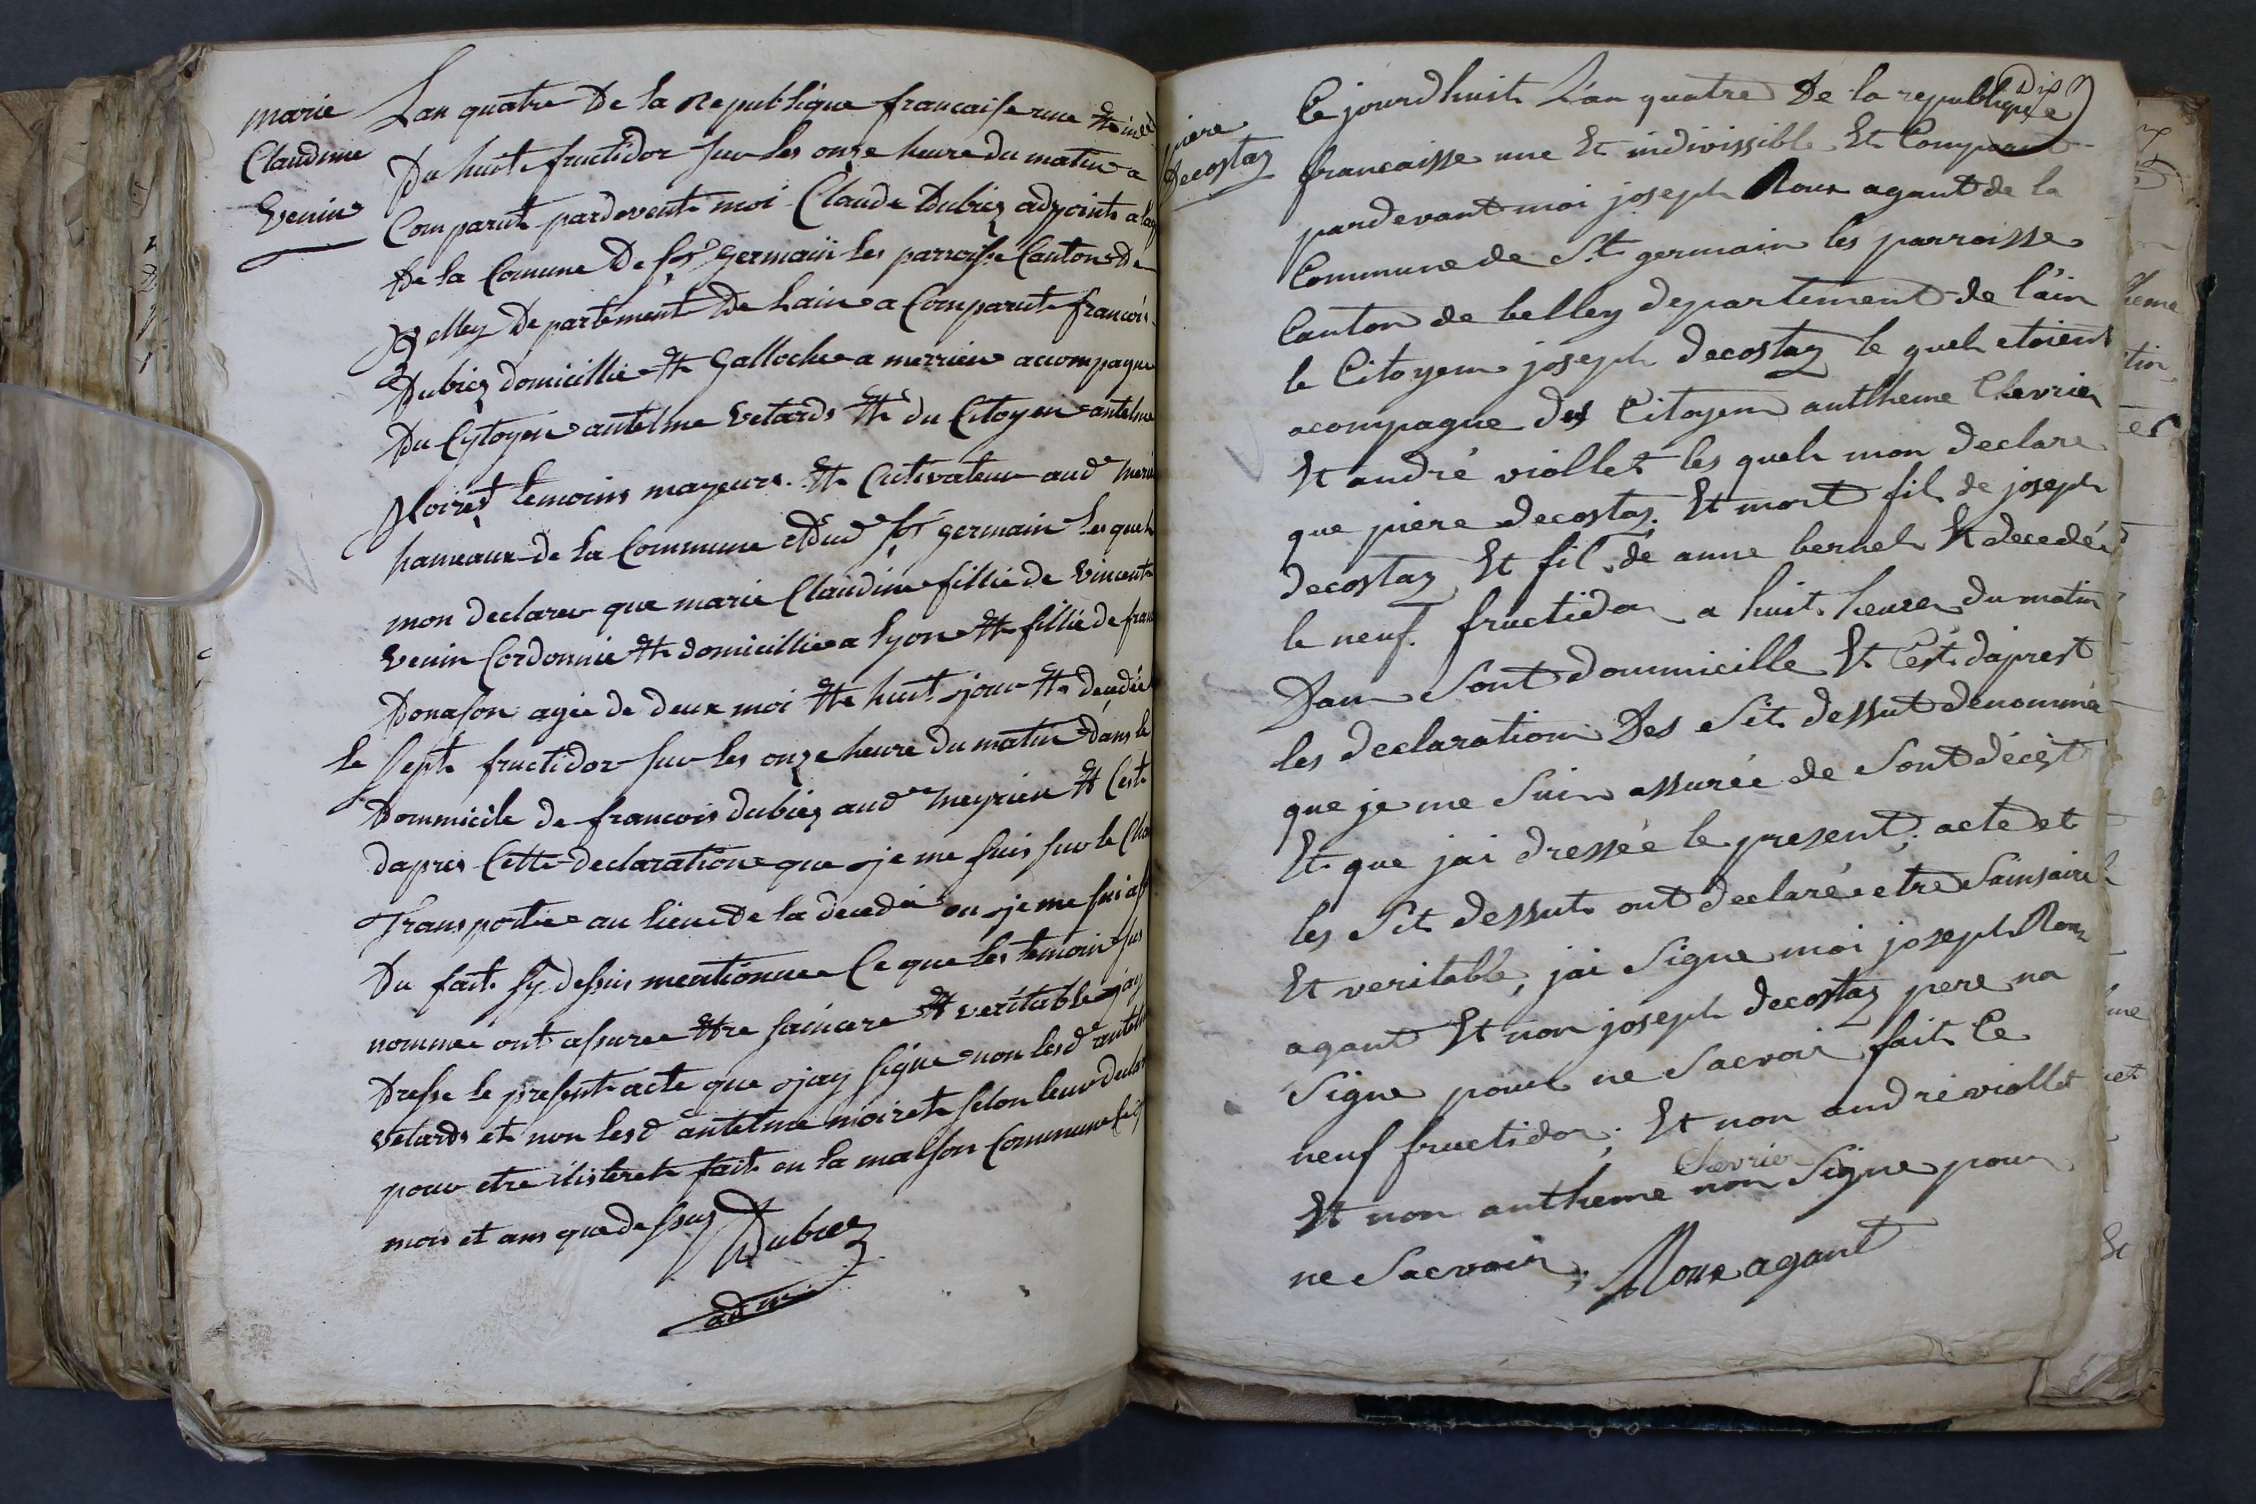 marie
Claudine
Venin
Lan quatre De la Republique francaise une et ind
Du huit fructidor sur les onze heure du matin a
Comparut pardevent moi Claude Dubiez adjoint a lag
De la Comune De st germain les parroisse Canton de
Belley Departement De Lain a Comparut francois
Dubiez domicillie et Galloche a merrieu accompagne
Du Cytoyen antelme Vetards et du Citoyen antelme
Moiret temoins mayeurs et Cutivateur aud meri
hameaux de la Commune dud st germain les quel
mon declarer que marie Claudine fillie de Vincent
Venin Cordonnie et domicillie a lyon et fillie de fran
Donason agée de deux moi et huit jour et decedée
le sept fructidor sur les onze heure du matin dans le
Dommicile de francois dubiez aud meyrieu et Cest
dapres Cette declaration que je me suis sur le Cha
Transportée au lieu De la decedée ou je me sui as
Du fait sy dessus mentionnee Ce que les temoin sus
nommée ont assuree etre saincere et veritable jay
Dresse le present acte que jay signe non lesd antelm
Vetards et non lesd antelme moiret selon leur declar
pour etre iliteret fait en la maison Commune les j
mois et ans que dessus Dubiez
adm
Dix
piere
Decostaz
Ce jourdhuit L'an quatre De la republique
francaisse une Et indivissible Et Comparut
pardevant moi joseph Roux agant de la
Commune de St germain les parroisse
Canton de belley departement de l'ain
le Citoyen joseph decostaz le quel etoient
acompagne des Citoyen anttheme Chevrier
Et andré viollet les quels mon declare
que piere decostaz Et mort fil de joseph
decostaz Et fil de anne bernel Et decedée
le neuf fructidor a huit heures du matin
Dans Sont dommicille Et C'est d'aprest
les declaration Des Sit dessut denommé
que je me Suis assurée de Sont décest
Et que jai dressée le present acte et
les Sit dessut ont declaré etre Sainsaire
Et veritable, jai Signe moi joseph Roux
agant Et non joseph decostaz pere na
Signe pour ne Sacvoir fait Ce
neuf fructidor, Et non andré viollet
Chevrier
Et non antheme non Signe pour
ne Sacvoir, Roux agant